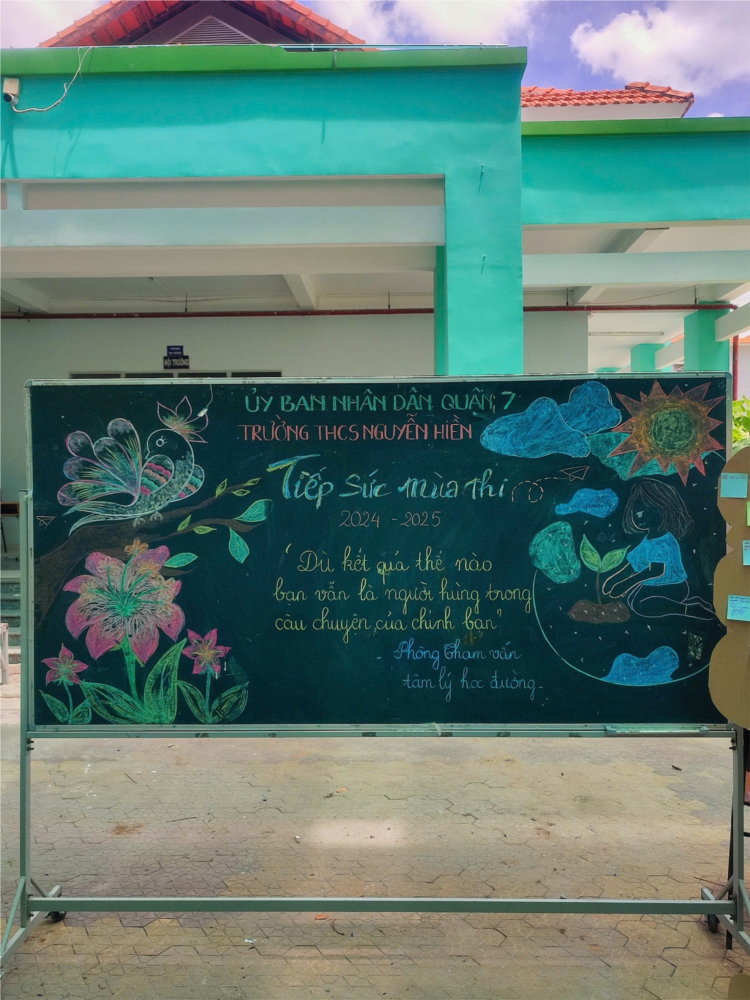 HỘI TRƯỜNG
ỦY BAN NHÂN DÂN QUẬN 7
TRƯỜNG THCS NGUYỄN HIỀN
Tiếp sức mùa thi
2024 - 2025
"Dù kết quả thế nào
bạn vẫn là người hùng trong
câu chuyện của chính bạn"
Phòng tham vấn
tâm lý học đường.